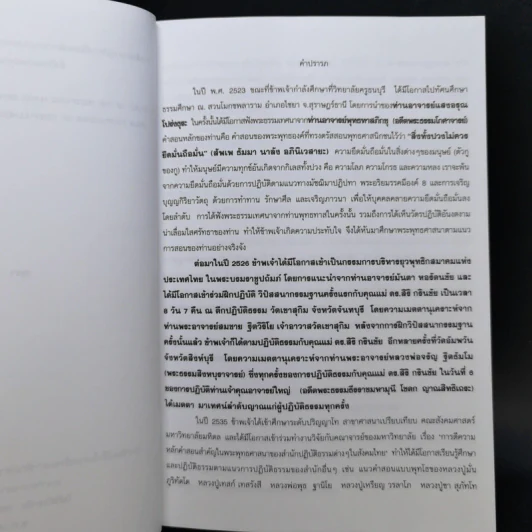 คำปรารภ
ในปี พ.ศ. 2523 ขณะที่ข้าพเจ้ากำลังศึกษาที่วิทยาลัยครูธนบุรี ได้มีโอกาสไปทัศนศึกษา
ธรรมศึกษา ณ. สวนโมกขพลาราม อำเภอไชยา จ.สุราษฎร์ธานี โดยการนำของท่านอาจารย์แสงอรุณ
โปร่งธุระ ในครั้งนั้นได้มีโอกาสฟังพระธรรมเทศนาจากท่านอาจารย์พุทธทาสภิกขุ (อดีตพระธรรมโกศาจารย์)
คำสอนหลักของท่านคือ คำสอนของพระพุทธองค์ที่ทรงตรัสสอนพุทธศาสนิกชนไว้ว่า "สิ่งทั้งปวงไม่ควร
ยึดมั่นถือมั่น" (สัพเพ ธัมมา นาลัง อภินิเวสายะ) ความยึดมั่นถือมั่นในสิ่งต่างๆของมนุษย์ (ตัวกู
ของกู) ทำให้มนุษย์มีความทุกข์อันเกิดจากกิเลสทั้งปวง คือ ความโลภ ความโกรธ และความหลง เราจะพ้น
จากความยึดมั่นถือมั่นด้วยการปฏิบัติตามแนวทางมัชฌิมาปฏิปทา พระอริยมรรคมีองค์ 8 และการเจริญ
บุญกิริยาวัตถุ ด้วยการทำทาน รักษาศีล และเจริญภาวนา เพื่อให้บุคคลคลายความยึดมั่นถือมั่นลง
โดยลำดับ การได้ฟังพระธรรมเทศนาจากท่านพุทธทาสในครั้งนั้น รวมถึงการได้เห็นวัตรปฏิบัติอันงดงาม
น่าเลื่อมใสศรัทธาของท่าน ทำให้ข้าพเจ้าเกิดความประทับใจ จึงได้หันมาศึกษาพระพุทธศาสนาตามแนว
การสอนของท่านอย่างจริงจัง
ต่อมาในปี 2526 ข้าพเจ้าได้มีโอกาสเข้าเป็นกรรมการบริหารยุวพุทธิกสมาคมแห่ง
ประเทศไทย ในพระบรมราชูปถัมภ์ โดยการแนะนำจากท่านอาจารย์มันตา หอรัตนชัย และ
ได้มีโอกาสเข้าร่วมฝึกปฏิบัติ วิปัสสนากรรมฐานครั้งแรกกับคุณแม่ ดร.สิริ กรินชัย เป็นเวลา
8 วัน 7 คืน ณ ตึกปฏิบัติธรรม วัดเขาสุกิม จังหวัดจันทบุรี โดยความเมตตานุเคราะห์จาก
ท่านพระอาจารย์สมชาย ฐิตวิริโย เจ้าอาวาสวัดเขาสุกิม หลังจากการฝึกวิปัสสนากรรมฐาน
ครั้งนั้นแล้ว ข้าพเจ้าก็ได้ตามปฏิบัติธรรมกับคุณแม่ ดร.สิริ กรินชัย อีกหลายครั้งที่วัดอัมพวัน
จังหวัดสิงห์บุรี โดยความเมตตานุเคราะห์จากท่านพระอาจารย์หลวงพ่อจรัญ ฐิตธัมโม
(พระธรรมสิงหบุราจารย์) ซึ่งทุกครั้งของการปฏิบัติธรรมกับคุณแม่ ดร.สิริ กรินชัย ในวันที่ 6
ของการปฏิบัติท่านเจ้าคุณอาจารย์ใหญ่ (อดีตพระธรรมธีรราชมหามุนี โชดก ญาณสิทธิเถระ)
ได้เมตตา มาเทศน์ลำดับญาณแก่ผู้ปฏิบัติธรรมทุกครั้ง
ในปี 2535 ข้าพเจ้าได้เข้าศึกษาระดับปริญญาโท สาขาศาสนาเปรียบเทียบ คณะสังคมศาสตร์
มหาวิทยาลัยมหิดล และได้มีโอกาสเข้าร่วมทำงานวิจัยกับคณาจารย์ของมหาวิทยาลัย เรื่อง "การตีความ
หลักคำสอนสำคัญในพระพุทธศาสนาของสำนักปฏิบัติธรรมต่างๆในสังคมไทย" ทำให้มีโอกาสเรียนรู้ศึกษา
และปฏิบัติธรรมตามแนวการปฏิบัติธรรมของสำนักอื่นๆ เช่น แนวคำสอนแบบพุทโธของหลวงปู่มั่น
ภูริทัตโต หลวงปู่เทสก์ เทสรังสี หลวงพ่อพุธ ฐานิโย หลวงปู่เหรียญ วรลาโภ หลวงปู่ชา สุภัทโท